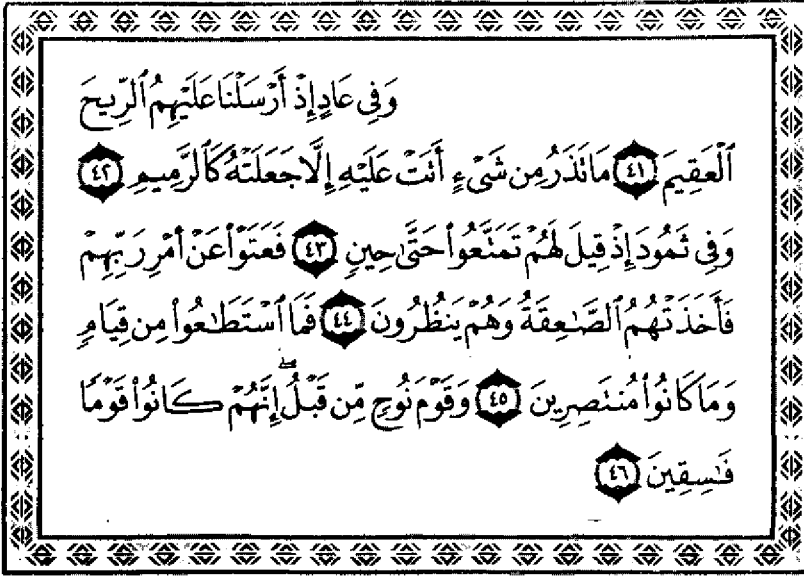 وَفِى عَادٍ إِذْ أَرْسَلْنَا عَلَيْهِمُ ٱلرِّيحَ
ٱلْعَقِيمَ ٤١ مَا تَذَرُ مِن شَىْءٍ أَتَتْ عَلَيْهِ إِلَّا جَعَلَتْهُ كَٱلرَّمِيمِ ٤٢
وَفِى ثَمُودَ إِذْ قِيلَ لَهُمْ تَمَتَّعُوا۟ حَتَّىٰ حِينٍ ٤٣ فَعَتَوْا۟ عَنْ أَمْرِ رَبِّهِمْ
فَأَخَذَتْهُمُ ٱلصَّـٰعِقَةُ وَهُمْ يَنظُرُونَ ٤٤ فَمَا ٱسْتَطَـٰعُوا۟ مِن قِيَامٍ
وَمَا كَانُوا۟ مُنتَصِرِينَ ٤٥ وَقَوْمَ نُوحٍ مِّن قَبْلُ ۖ إِنَّهُمْ كَانُوا۟ قَوْمًا
فَـٰسِقِينَ ٤٦